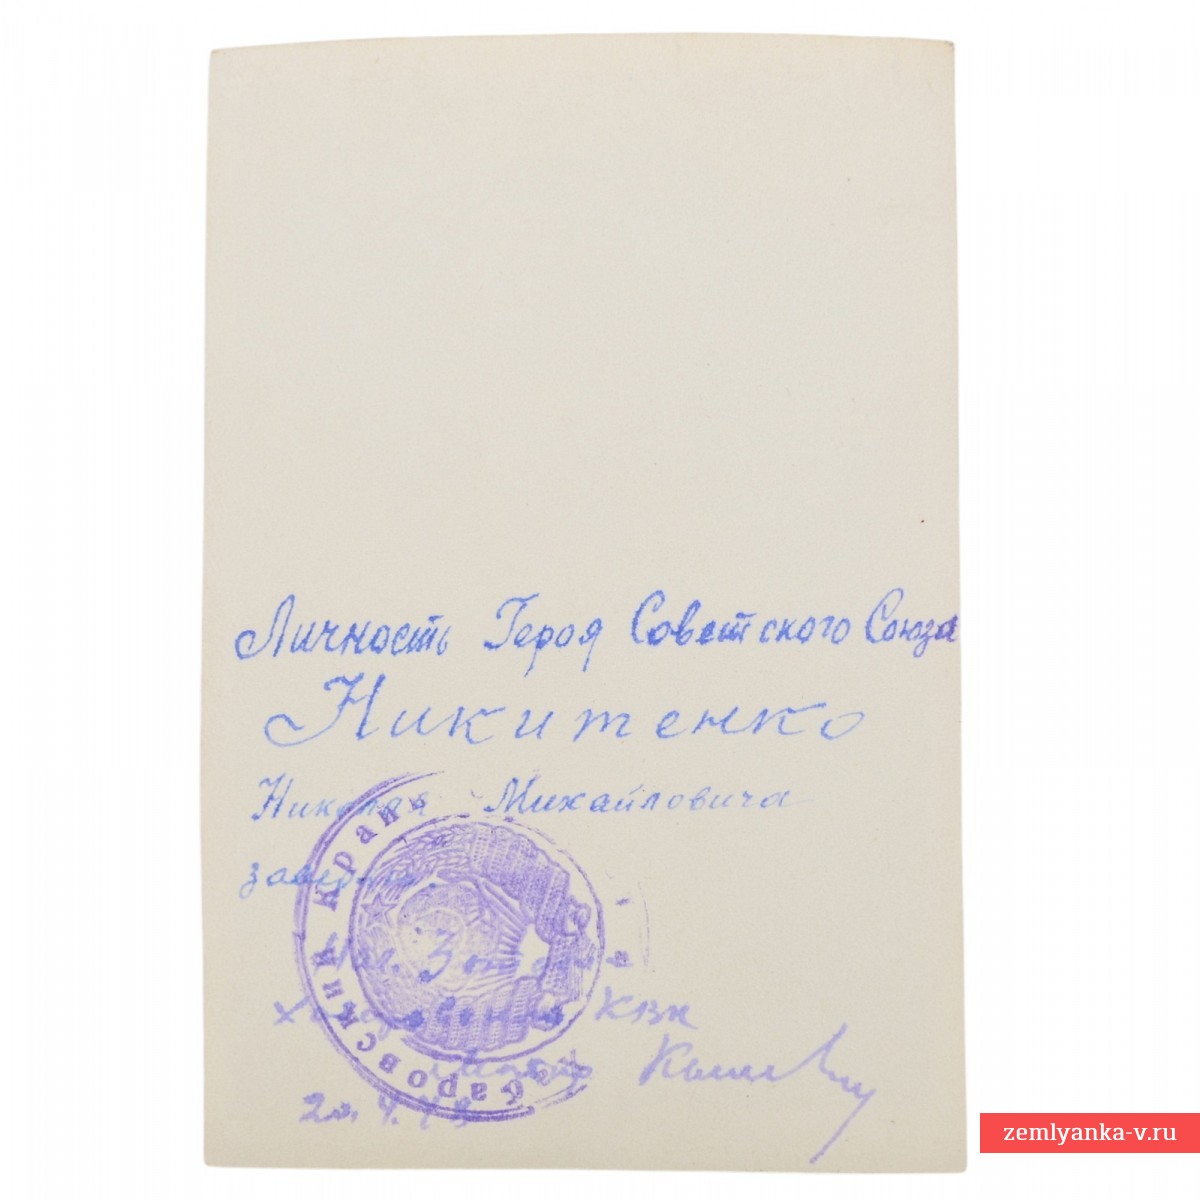 Личность Героя Советского Союза
Никитенко
Николая Михайловича
заверяю.
3 отдела
КВК
майор
20.4.48
Хабаровский край
zemlyanka-v.ru